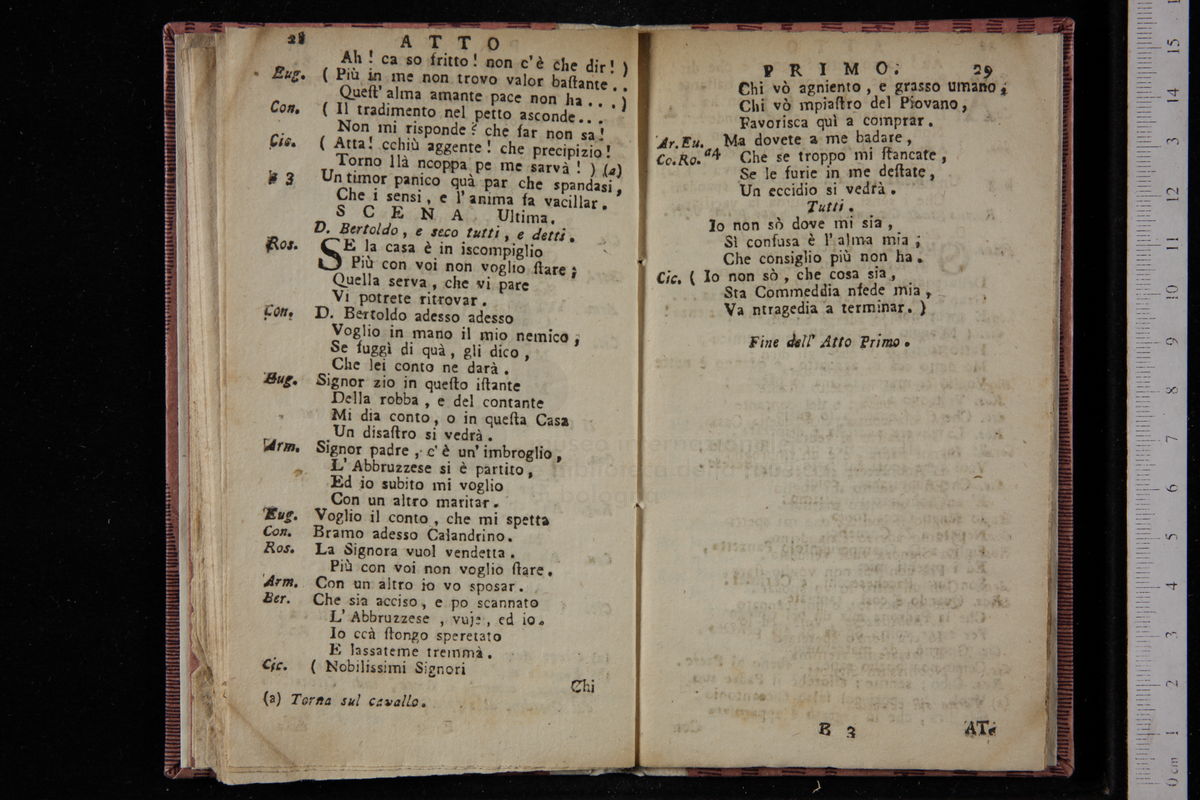 28 ATTO
Ah! ca so fritto! non c'è che dir! )
Eug. ( Più in me non trovo valor baſtante..
Queſt' alma amante pace non ha... )
Con. ( Il tradimento nel petto asconde...
Non mi risponde? che far non sa!
Cic. ( Atta! cchiù aggente! che precipizio!
Torno llà ncoppa pe me sarvà! ) (a)
a 3 Un timor panico quà par che spandasi,
Che i sensi, e l'anima fa vacillar.
SCENA Ultima.
D. Bertoldo, e seco tutti, e detti.
Ros. SE la casa è in iscompiglio
Più con voi non voglio ſtare;
Quella serva, che vi pare
Vi potrete ritrovar.
Con. D. Bertoldo adesso adesso
Voglio in mano il mio nemico;
Se fuggì di quà, gli dico,
Che lei conto ne darà.
Eug. Signor zio in queſto iſtante
Della robba, e del contante
Mi dia conto, o in queſta Casa
Un disaſtro si vedrà.
Arm. Signor padre, c'è un' imbroglio,
L' Abbruzzese si è partito,
Ed io subito mi voglio
Con un altro maritar.
Eug. Voglio il conto, che mi spetta
Con. Bramo adesso Calandrino.
Ros. La Signora vuol vendetta.
Più con voi non voglio ſtare.
Arm. Con un altro io vo sposar.
Ber. Che sia acciso, e po scannato
L' Abbruzzese, vuje, ed io.
Io ccà ſtongo speretato
E lassateme tremmà.
Cic. ( Nobilissimi Signori
Chi
(a) Torna sul cavallo.
PRIMO. 29
Chi vò agniento, e grasso umano;
Chi vò mpiaſtro del Piovano,
Favorisca quì a comprar.
Ar. Eu. Ma dovete a me badare,
Co. Ro. a4 Che se troppo mi ſtancate,
Se le furie in me deſtate,
Un eccidio si vedrà.
Tutti.
Io non sò dove mi sia,
Sì confusa è l'alma mia;
Che consiglio più non ha.
Cic. ( Io non sò, che cosa sia,
Sta Commeddia nfede mia,
Va ntragedia a terminar. )
Fine dell' Atto Primo.
B 3 AT-